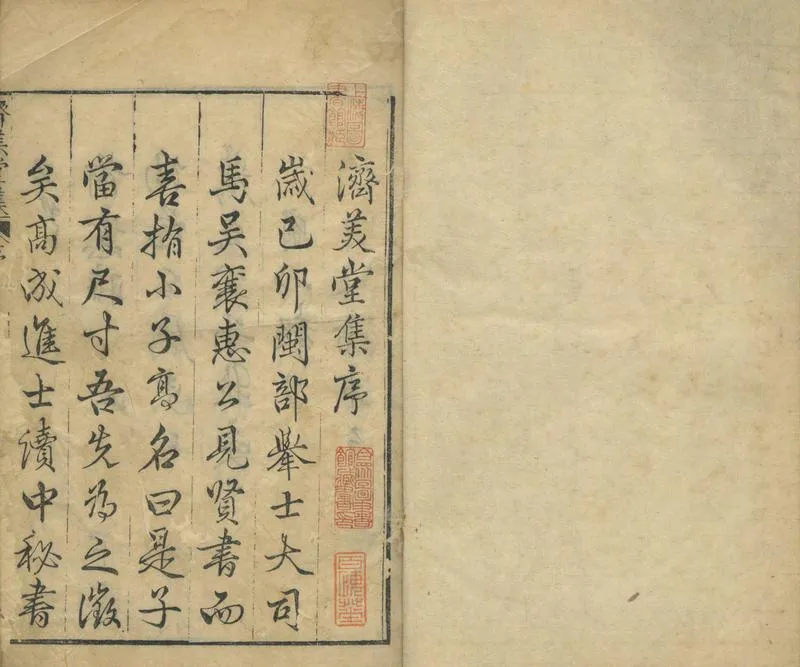 濟美堂集序
歲己卯閩部舉士大司
馬吳襄惠公見賢書而
喜指小子高名曰是子
當有尺寸吾先為之徵
矣高成進士讀中秘書
濟美堂集